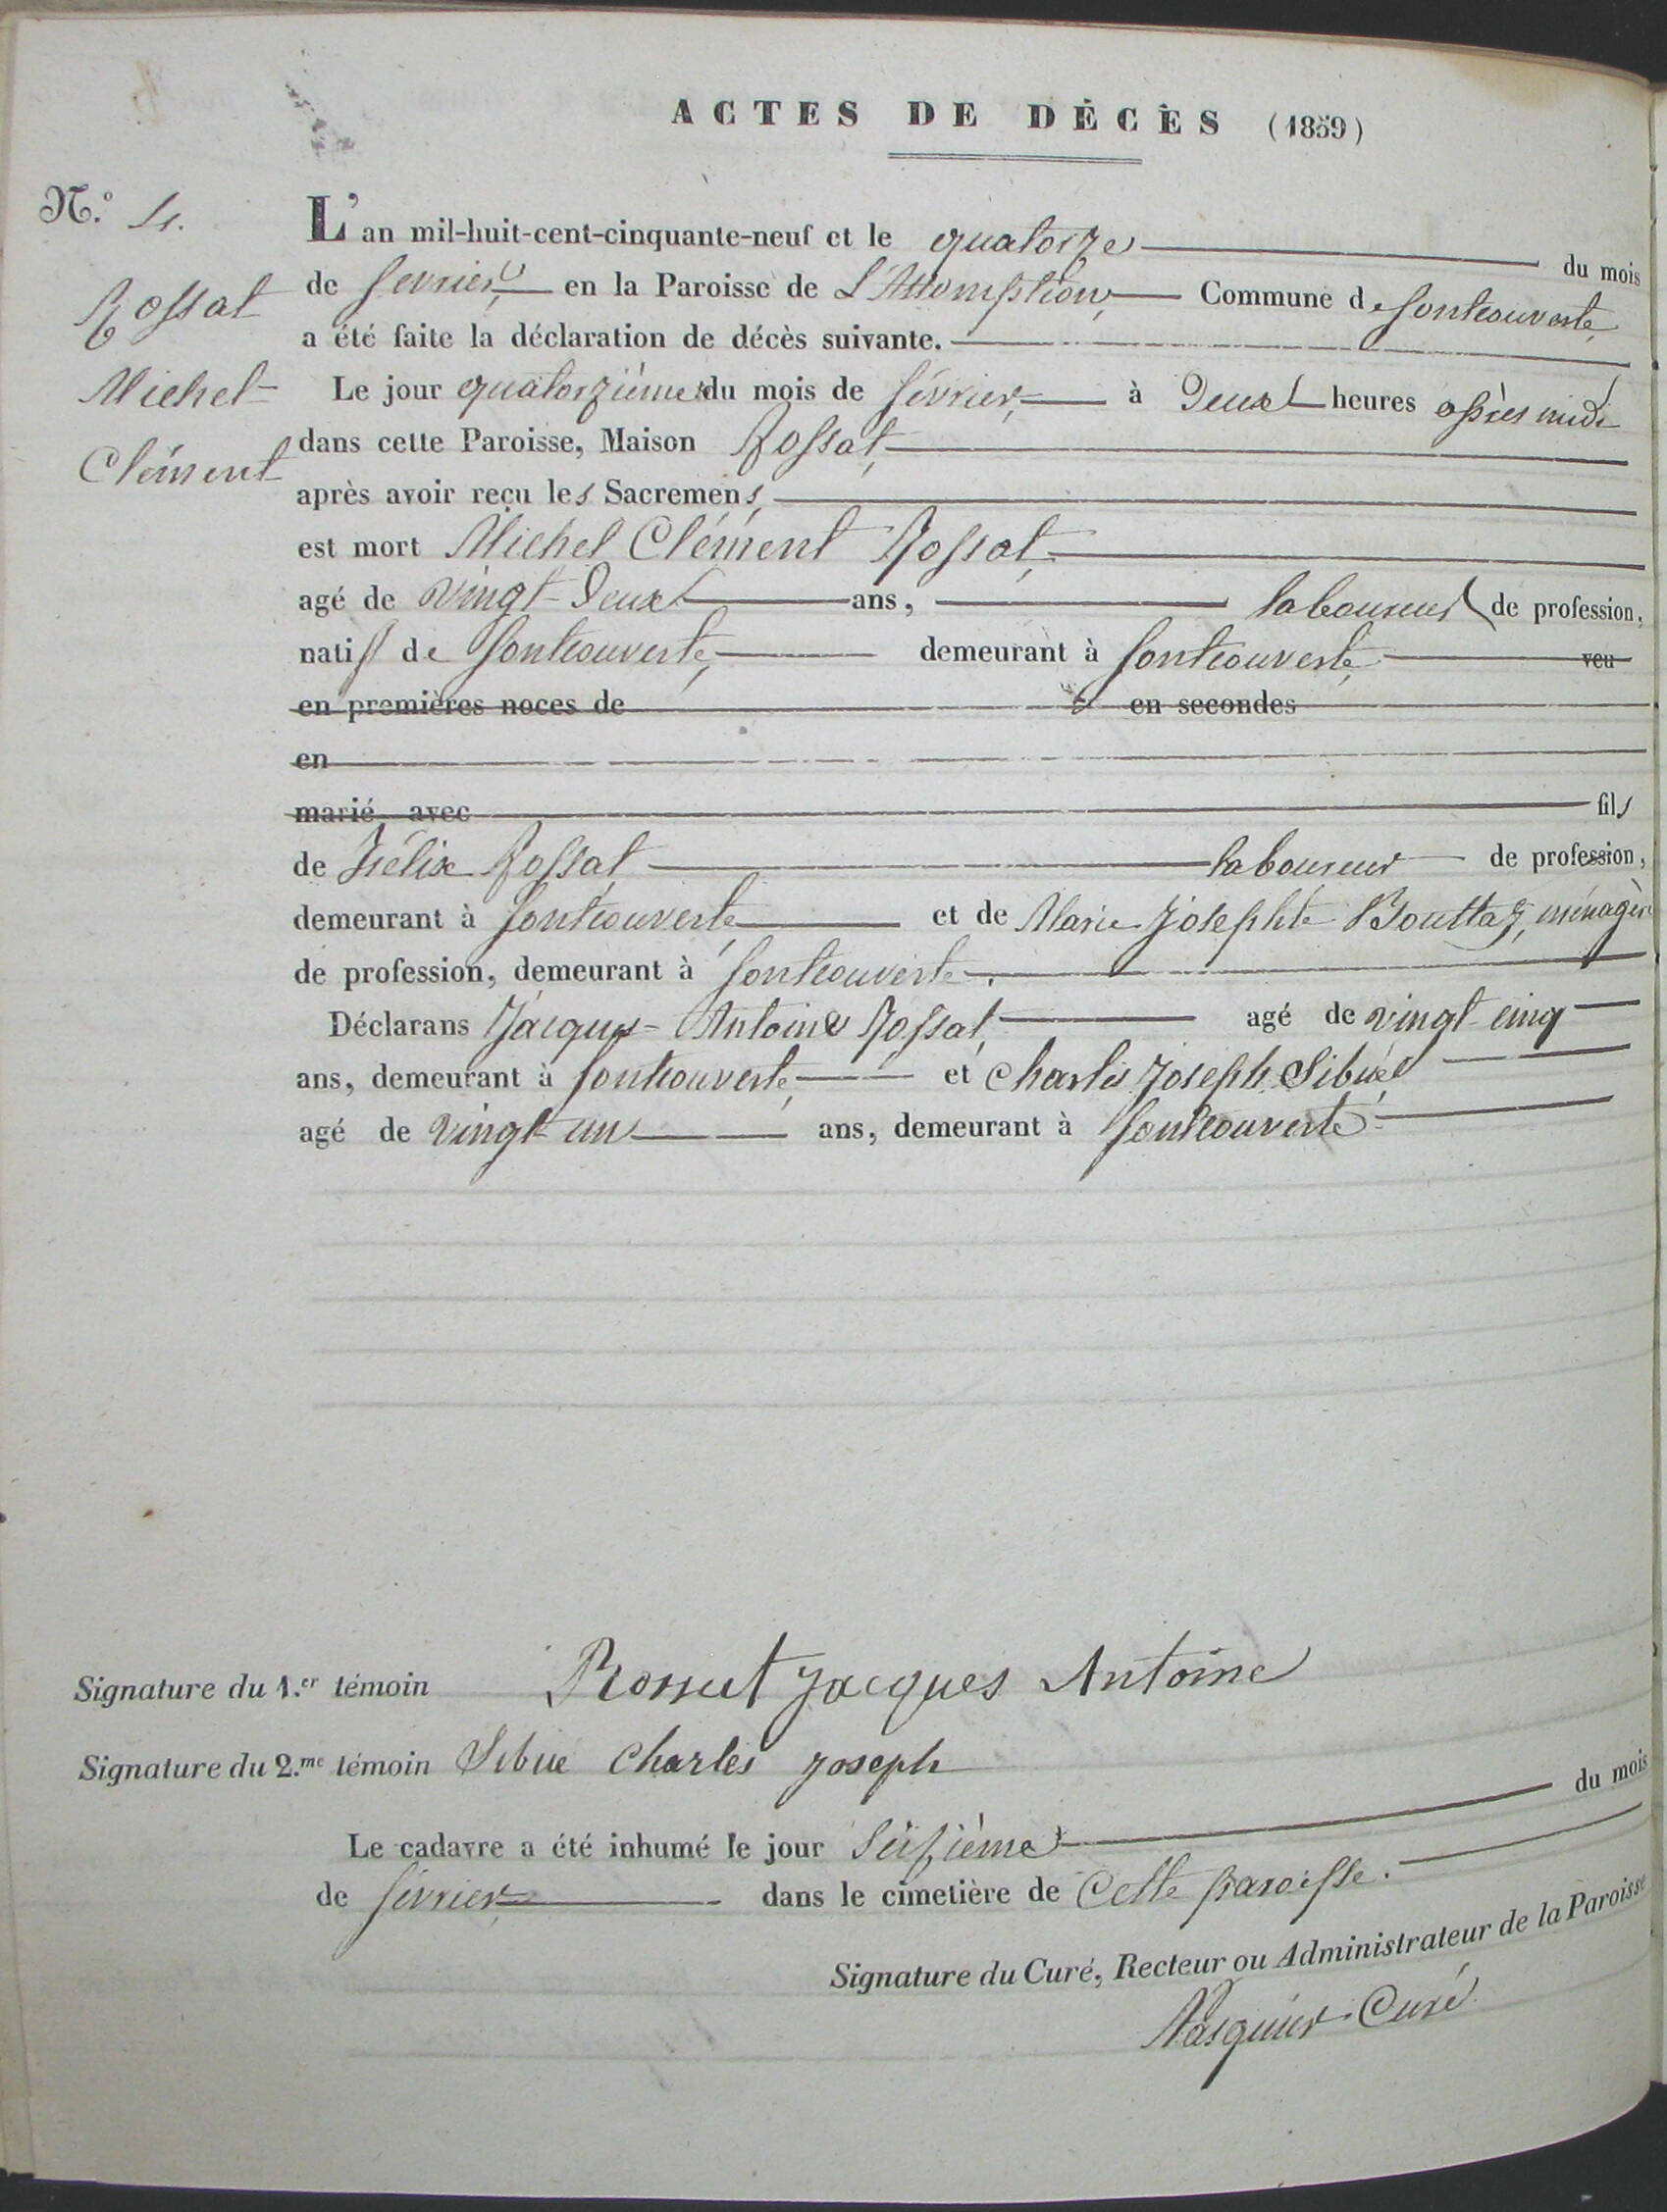 ACTES DE DÉCÈS (1859)
N.º 4.
Rossat
Michel
Clément
L'an mil-huit-cent-cinquante-neuf et le quatorze du mois
de février, en la Paroisse de L'Assomption, Commune de fontcouverte,
a été faite la déclaration de décès suivante.
Le jour quatorzième du mois de février, à deux heures après midi
dans cette Paroisse, Maison Rossat,
après avoir reçu les Sacremens,
est mort Michel Clément Rossat,
agé de vingt-deux ans, laboureur de profession,
natif de fontcouverte, demeurant à fontcouverte, veu
en premières noces de en secondes
en
marié avec fils
de Félix Rossat laboureur de profession,
demeurant à fontcouverte, et de Marie Josephte Bouttaz, ménagère
de profession, demeurant à fontcouverte.
Déclarans Jacques-Antoine Rossat, agé de vingt-cinq
ans, demeurant à fontcouverte, et Charles Joseph Sibué,
agé de vingt-un ans, demeurant à fontcouverte.
Signature du 1.er témoin Rossat Jacques Antoine
Signature du 2.me témoin Sibué Charles Joseph
Le cadavre a été inhumé le jour seizième du mois
de février, dans le cimetière de Cette paroisse.
Signature du Curé, Recteur ou Administrateur de la Paroisse
Curé